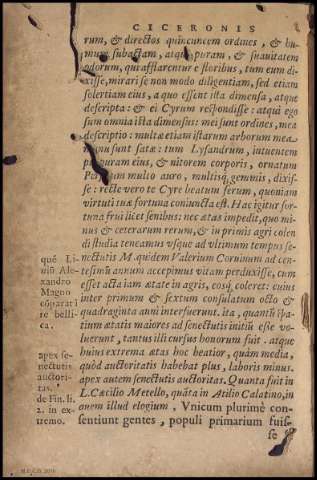 CICERONIS
rum, & directos quincuncem ordines, & hu-
mum subactam, atq; puram, & suauitatem
odorum, qui afflarentur e floribus, tum eum di-
xisse, mirari se non modo diligentiam, sed etiam
solertiam eius, a quo essent ista dimensa, atque
descripta: & ei Cyrum respondisse: atqui ego
sum omnia ista dimensus: mei sunt ordines, mea
descriptio: multæ etiam istarum arborum mea
manu sunt satæ: tum Lysandrum, intuentem
purpuram eius, & nitorem corporis, ornatum
Persicum multo auro, multisq; gemmis, dixis-
se: recte vero te Cyre beatum ferunt, quoniam
virtuti tuæ fortuna coniuncta est. Hac igitur for
tuna frui licet senibus: nec ætas impedit, quo mi-
nus & ceterarum rerum, & in primis agri colen
di studia teneamus vsque ad vltimum tempus se-
nectutis M. quidem Valerium Coruinum ad cen-
tesimũ annum accepimus vitam perduxisse, cum
esset acta iam ætate in agris, eosq; coleret: cuius
inter primum & sextum consulatum octo &
quadraginta anni interfuerunt. ita, quantũ spa-
tium ætatis maiores ad senectutis initiũ esse vo-
luerunt, tantus illi cursus honorum fuit. atque
huius extrema ætas hoc beatior, quàm media,
quòd auctoritatis habebat plus, laboris minus.
apex autem senectutis auctoritas. Quanta fuit in
L. Cæcilio Metello, quãta in Atilio Calatino, in
quem illud elogium, Vnicum plurimè con-
sentiunt gentes, populi primarium fuis-
se
quẽ Li-
uiũ Ale-
xandro
Magno
cõparat i
re belli-
ca.
apex se-
nectutis
auctori-
tas.
de Fin. li.
2. in ex-
tremo.